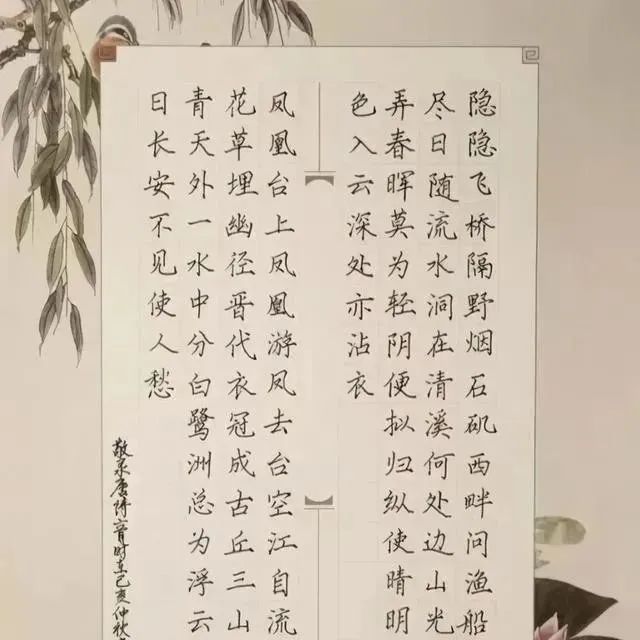 隐隐飞桥隔野烟石矶西畔问渔船
尽日随流水洞在清溪何处边山光
弄春晖莫为轻阴便拟归纵使晴明
色入云深处亦沾衣
凤凰台上凤凰游凤去台空江自流
花草埋幽径晋代衣冠成古丘三山
青天外一水中分白鹭洲总为浮云
日长安不见使人愁
敬录唐诗首时在己亥仲秋